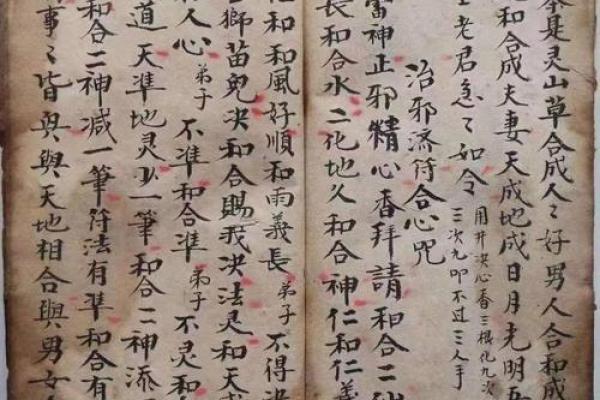 茶是灵山草合成人〻好男人合和成
和合成夫妻天成地成日月光明吾
老君急〻如令
用井决心香三根化九次
三次九叩不过三人手
治邪济符合心咒
雷神正邪精心香拜請和合二
長和合水二化地久和合神仁和仁義
和和風好順和雨義長 弟子 不得決
獅苗鬼决和合賜我决法灵和天
人心 弟子 不準和合準 弟子 不灵和
道 天準地灵少一筆和合二神添
和合二神减一筆符法有準和合有
事〻皆與與天地相合與男女